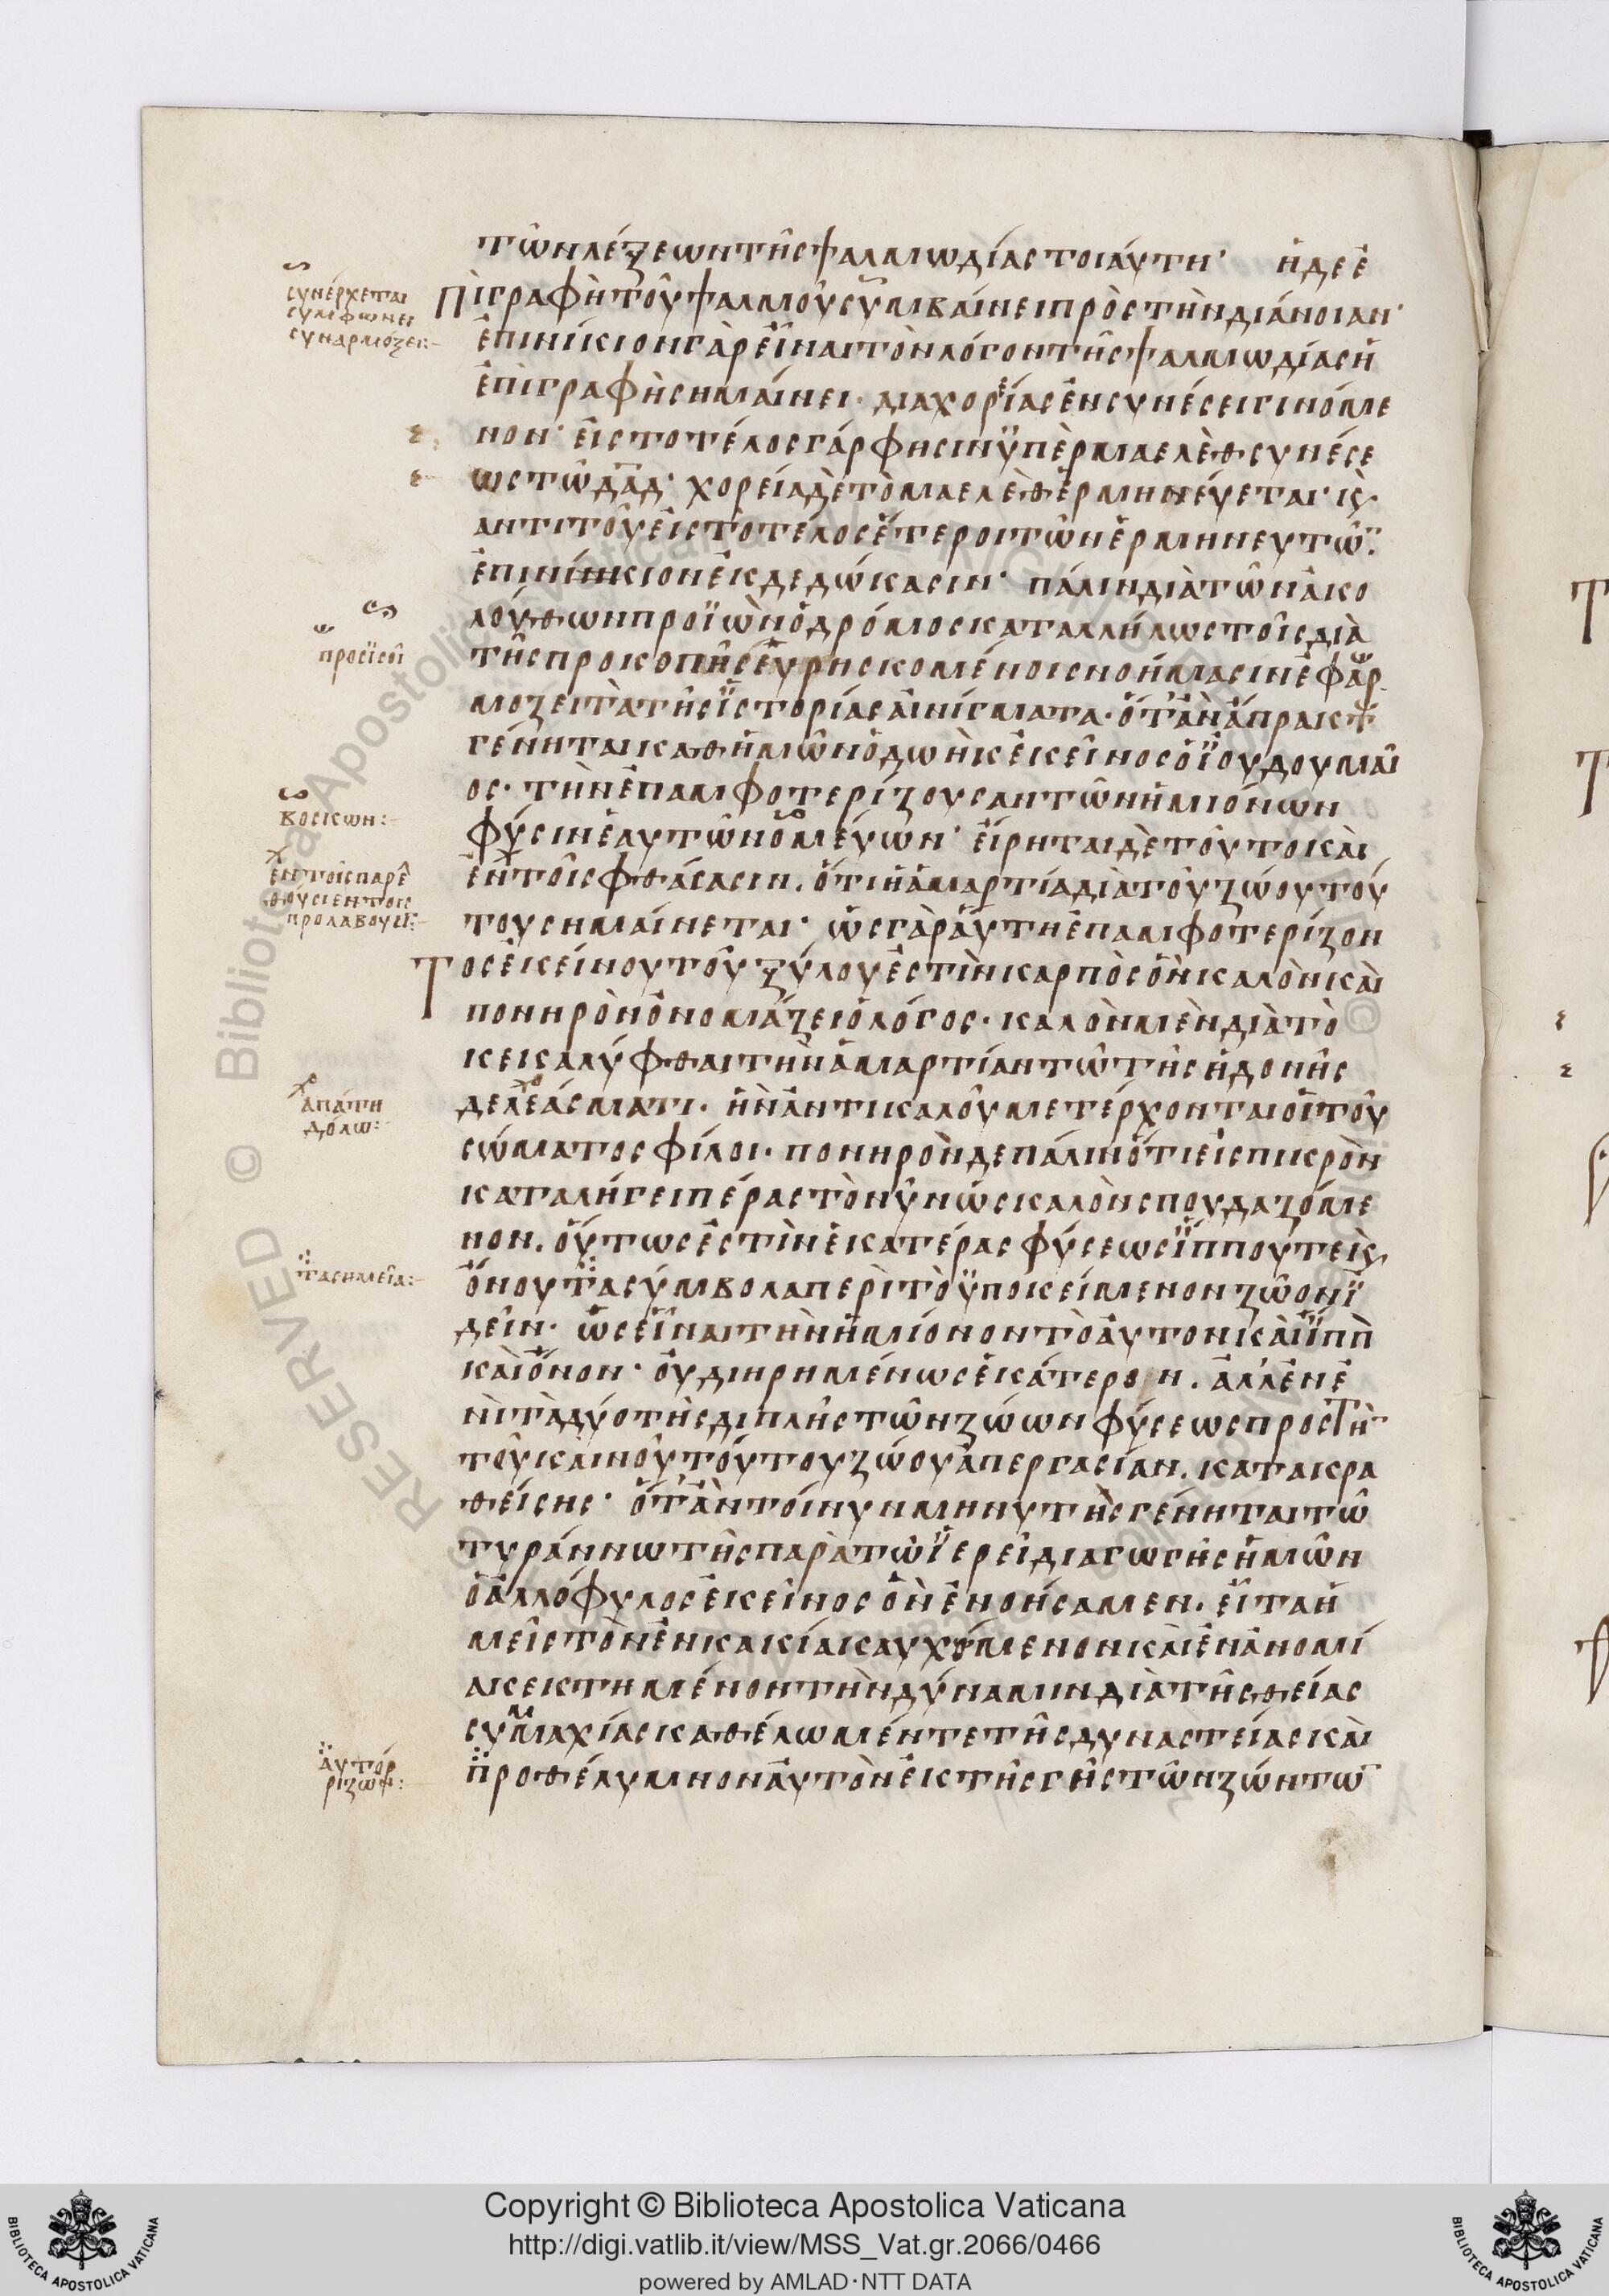 τῶν λέξεων τῆς ψαλμωδίας τοιάυτη· ἡ δε ἐ
πιγραφὴ τοῦ ψαλμοῦ συμβάινει πρὸς τὴν διάνοιαν·
ἐπινίκιον γὰρ εἶναι τὸν λόγον τῆς ψαλμωδίας ἡ
ἐπιγραφὴ σημάινει· διαχορείας ἐν συνέσει γινόμε
νον· εἰς το τέλος γάρ φησιν ὑπὲρ μαελὲθ συνέσε
ως τῶ δᾱδ· χορεία δὲ τὸ μαελὲθ ἑρμηνέυεται· κ(αὶ)
αντι τοῦ εἰς τὸ τέλος ἕτεροι τῶν ἑρμηνευτῶ(ν)
ἐπινίκιον ἐκδεδώκασιν· πάλιν διὰ τῶν ἀκο
λούθων προϊὼν ὁ δρόμος καταλλήλως τοῖς διὰ
τῆς προκοπῆς ἑυρησκομένοις νοήμασιν ἐφαρ
μοζει τὰ τῆς ἱστορίας ἀινίγματα· ὅτ' ἂν ἄπρακτ
γένηται καθ ἡμῶν ὁ δωὴκ ἐκεῖνος ὁ ἰουδουμαῖ
ος· τὴν ἐπαμφοτερίζουσαν τῶν ἡμιόνων
φύσιν ἑαυτῶ νομέυων· εἴρηται δὲ τοῦτο κὰι
ἐν τοῖς φθάσασιν. ὅτι ἡ ἁμαρτία διὰ τοῦ ζώου τού
του σημάινεται· ὡς γὰρ ἅυτη ἐπαμφοτερίζον
τος ἐκείνου τοῦ ξύλου ἐστὶν καρπὸς ὃν καλὸν κὰι
πονηρὸν ὀνομάζει ὁ λόγος· καλὸν μὲν διὰ τὸ
κεκαλύφθαι τὴν ἁμαρτίαν τῶ τῆς ἡδονῆς
δελεάσματι· ἣν ἀντι καλοῦ μετέρχονται ὁι τοῦ
σώματος φίλοι· πονηρὸν δε πάλιν ὅτι εἰς πικρὸν
καταλήγει πέρας τὸ νῦν ὡς καλὸν σπουδαζόμε
νον. οὕτως ἐστὶν ἑκατέρας φύσεως ἵππου τε κ(αὶ)
ὄνου τὰ σύμβολα περὶ τὸ ὑποκείμενον ζῶον ἰ
δεῖν· ὡς εἶναι τὴν ἡμίονον τὸ ἀυτον κὰι ἵππ
κὰι ὄνον· οὐ διηρημένως ἑκάτερον. ἀλλ' ἐν ἑ
νὶ τὰ δύο τῆς διπλῆς τῶν ζώων φύσεως προς τὴ(ν)
τοῦ κάινου τούτου ζώου ἀπεργασίαν. κατακρα
θείσης· ὅτ' ἂν τοίνυν μηνυτὴς γένηται τῶ
τυράννω τῆς παρὰ τῶ ἱερεῖ διαγωγῆς ἡμῶν
ὁ ἀλλόφυλος ἐκεῖνος ὃν ἐνοήσαμεν· εἶτα ἡ
μεῖς τὸν ἐν κακίαι καυχόμενον κὰι ἐν ἀνομί
αις εκτημένον τὴν δύναμιν διὰ τῆς θείας
συμμαχίας καθέλωμέν τε τῆς δυναστείας κὰι
προθέλυμνον ἀυτὸν ἐκ τῆς γῆς τῶν ζώντω
συνέρχεται
συμφωνει
συναρμόζει:
προσίσοι
βοσκων:
ἐν τοῖς παρε
θοῦσι εν τοις
προλαβουσι:
ἀπάτη
δόλω:
τα σημεῖα:
ἀυτόρ
ριζων:
Copyright © Biblioteca Apostolica Vaticana
http://digi.vatlib.it/view/MSS_Vat.gr.2066/0466
powered by AMLAD·NTT DATA